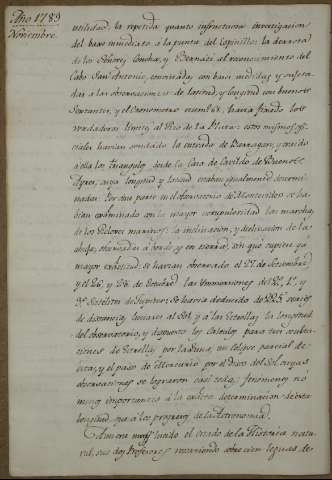 Año 1789
Noviembre.
utilidad la repetida quanto infructuosa investigacion
del banco inmediato à la punta del Espinillo: la derrota
de los Señores Concha, y Bernaci al reconocimiento del
Cabo San Antonio, enlazadas con bases medidas y sujetas
das à las observaciones de latitud, y longitud con buenos
Sextantes, y el Cronometro num° 61, havia fixado los
verdaderos limites al Rio de la Plata: estos mismos ofi-
ciales havian sondado la ensenada de Barragan, y traido
à ella los triangulos desde la Casa de Cavildo de Buenos
Ayres, cuya longitud y latitud estaban igualmente determi-
nadas. Por otra parte en el observatorio de Montevideo se ha-
bian examinado con la mayor escrupulosidad las marchas
de los Relojes marinos: la inclinacion, y declinacion de la
abuja, observadas à bordo, y en tierra, sin que cupiese ya
mayor exâctitud: se havian observado el 27 de Setiembre,
y el 26, y 28 de Octubre las Ymmersiones del 2°, 1°, y
3° Satelites de Jupiter; se havia deducido de 225 series
de distancias lunares al Sol, y à las Estrellas la longitud
del observatorio, y dispuesto los Calculos para tres oculta-
ciones de Estrellas por la Luna, un eclipse parcial de
esta, y el paso de Mercurio por el disco del Sol cuyas
observaciones se lograron casi todas, fenomenos no
menos importantes à la exâcta determinacion de esta
longitud, que à los progresos de la Astronomia.
Aun era mas lucido el estado de la Historia natu-
ral, sus dos Profesores recorriendo sobre cien leguas de